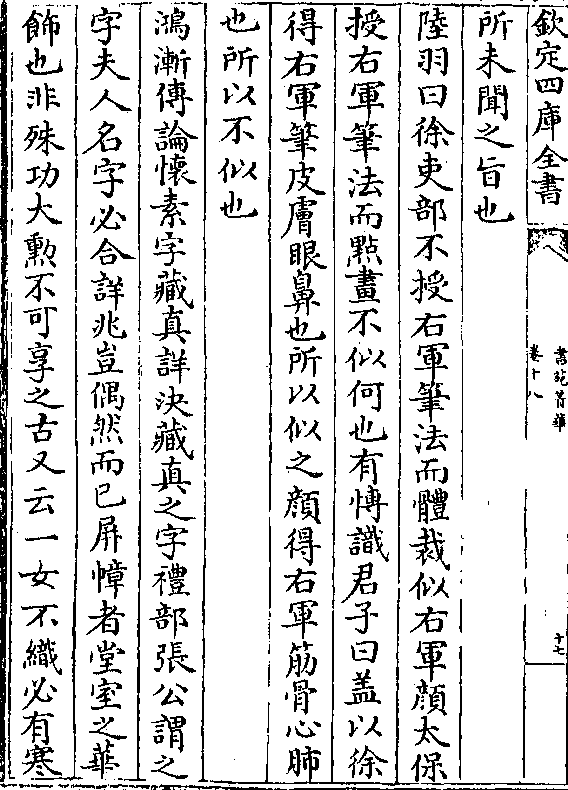 欽定四庫全書
書苑菁華
卷十八
十七
所未聞之旨也
陸羽曰徐吏部不授右軍筆法而體裁似右軍顔太保
授右軍筆法而點畫不似何也有愽識君子曰葢以徐
得右軍筆皮膚眼鼻也所以似之顔得右軍筋骨心肺
也所以不似也
鴻漸傳論懐素字藏真詳決藏真之字禮部張公謂之
字夫人名字必合詳兆豈偶然而已屏幛者堂室之華
飾也非殊功大勲不可享之古又云一女不織必有寒